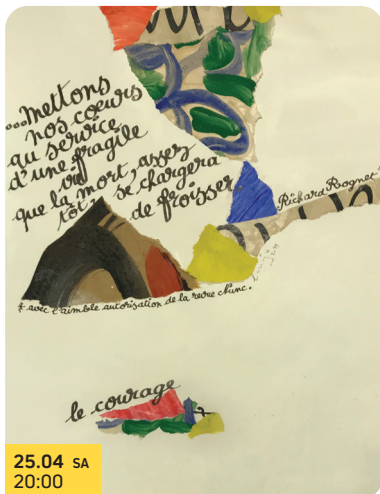 ...mettons
nos cœurs
au service
d'une fragile
vie
que la mort, assez
tôt, se chargera
de froisser
Richard Rognet*
* avec l'aimable autorisation de la revue Nunc.
le courage
25.04 SA
20:00